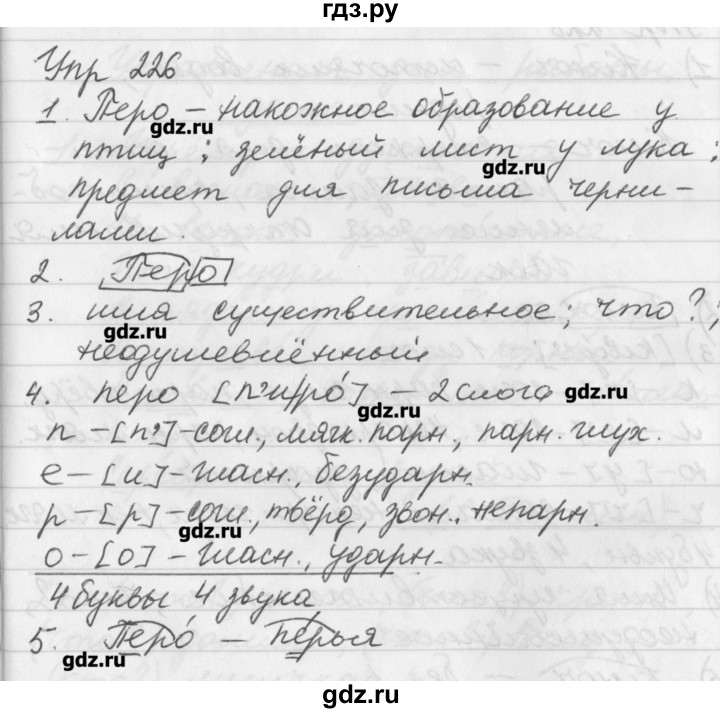 гдз.ру
Упр 226
1. Перо – накожное образование у
gdz.ru
птиц; зелёный лист у лука;
gdz.ru
предмет для письма черни-
лами.
2. Перо
3. имя существительное; что?;
gdz.ru
неодушевлённый
4. перо [п'и/ро́] – 2 слога
gdz.ru
gdz.ru
п – [п']-согл., мягк. парн., парн. глух.
е – [и] – гласн., безударн.
р – [р] – согл., твёрд, звон., непарн.
gdz.ru
о – [о] – гласн., ударн.
4 буквы 4 звука
5. Перо́ – пе́рья
gdz.ru
gdz.ru